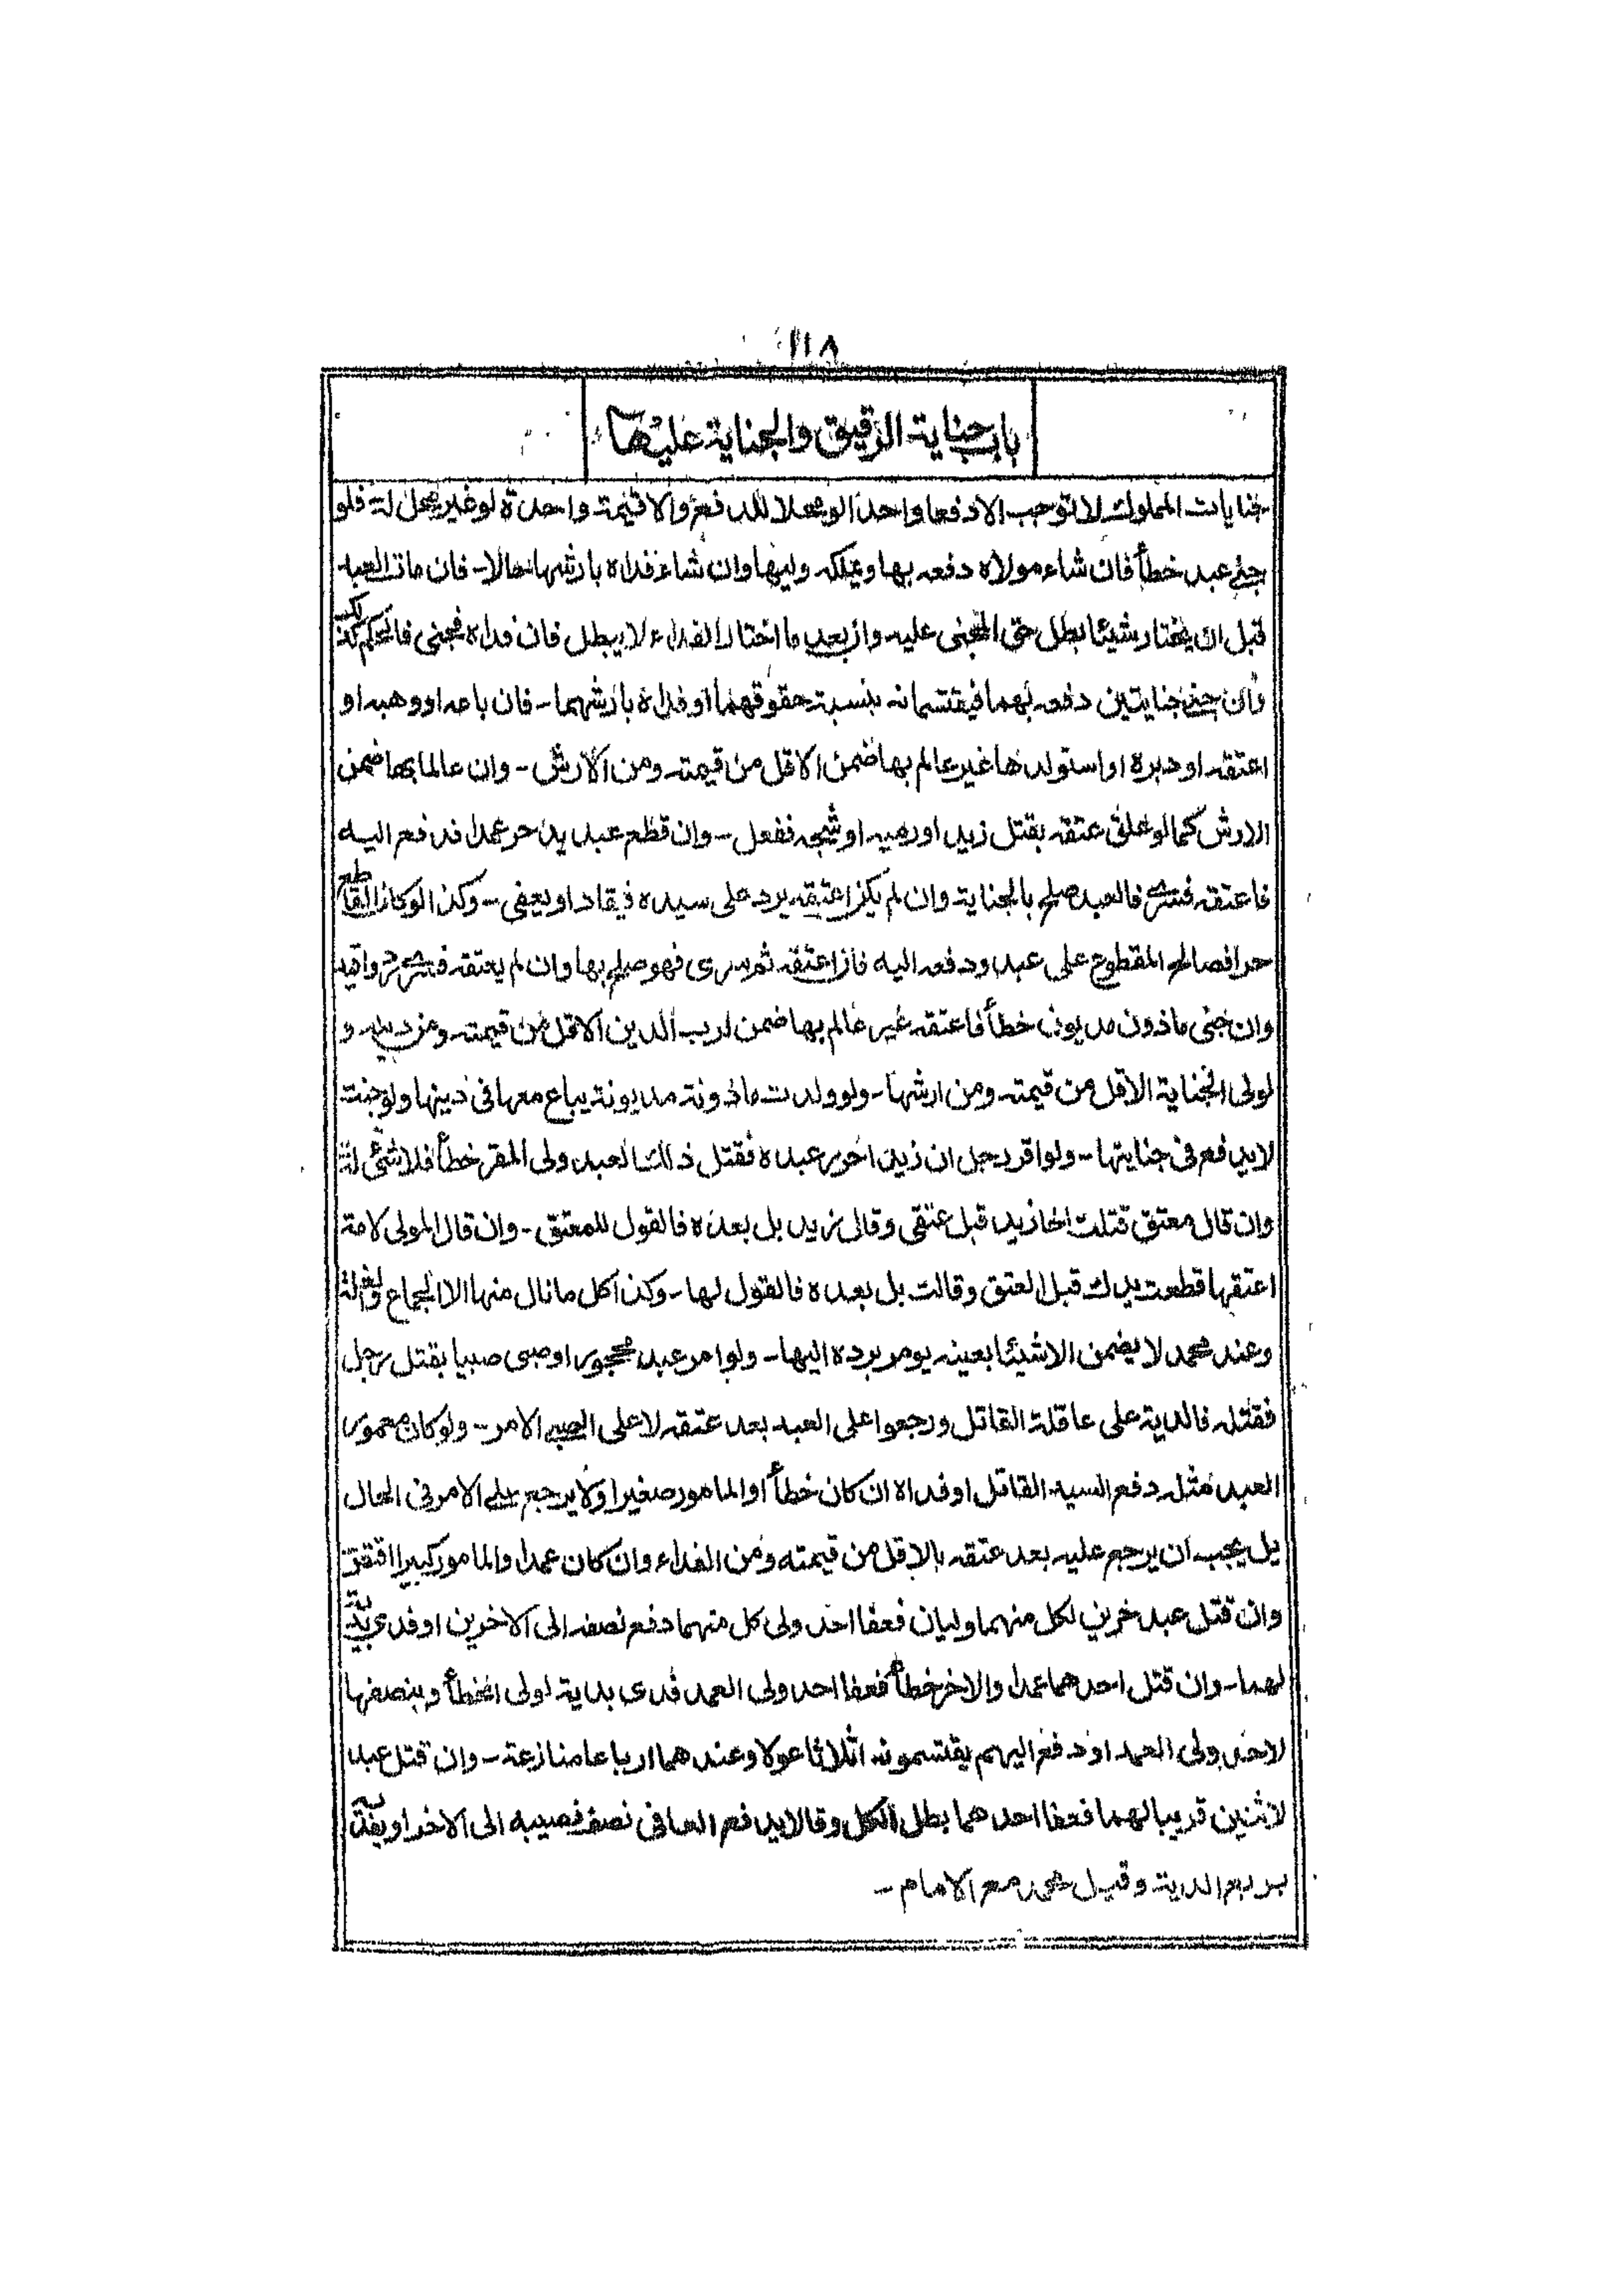 ١١٨
باب جناية الرقيق والجناية عليها
جنايات المملوك لا توجب الا دفعا واحدا لو محلا للدفع والا قيمة واحدة لو غير محل له فلو
جنى عبد خطأ فان شاء مولاه دفعه بها ويملكه وليها وان شاء فداه بارشها حالا - فان مات العبد
قبل ان يختار شيئا بطل حق المجنى عليه وان بعد ما اختار الفداء لا يبطل فان فداه فجنى فالحكم كذلك
وان جنى جنايتين دفعه بهما فيقتسمانه بنسبة حقوقهما او فداه بارشهما - فان باعه او وهبه او
اعتقه او دبره او استولدها غير عالم بها ضمن الاقل من قيمته ومن الارش - وان عالما بها ضمن
الارش كما لو علق عتقه بقتل زيد او رميه او شجه ففعل - وان قطع عبد يد حر عمدا فدفع اليه
فاعتقه فسرى فالعبد صلح بالجناية وان لم يكن اعتقه يرد على سيده فيقاد او يعفى - وكذا لو كان القاطع
حرا فصالح المقطوع على عبد ودفعه اليه فان اعتقه ثم سرى فهو صلح بها وان لم يعتقه فسرى رد واقيد
وان جنى ماذون مديون خطأ فاعتقه غير عالم بها ضمن لرب الدين الاقل من قيمته ومن دينه و
لولى الجناية الاقل من قيمته ومن ارشها - ولو ولدت ماذونة مديونة يباع معها فى دينها ولو جنت
لا يدفع فى جنايتها - ولو اقر رجل ان زيدا حرر عبده فقتل ذلك العبد ولى المقر خطأ فلا شئ له
وان قال معتق قتلت اخا زيد قبل عتقى وقال زيد بل بعده فالقول للمعتق - وان قال المولى لامة
اعتقها قطعت يدك قبل العتق وقالت بل بعده فالقول لها - وكذا كل ما نال منها الا الجماع والغلة
وعند محمد لا يضمن الا شيئا بعينه يومر برده اليها - ولو امر عبد محجور او صبى صبيا بقتل رجل
فقتله فالدية على عاقلة القاتل ورجعوا على العبد بعد عتقه لا على الصبى الامر - ولو كان مامور
العبد مثله دفع السيد القاتل او فداه ان كان خطأ او المامور صغيرا ولا يرجع على الامر فى الحال
بل يجب ان يرجع عليه بعد عتقه بالاقل من قيمته ومن الفداء وان كان عمدا والمامور كبيرا اقتص
وان قتل عبد حرين لكل منهما وليان فعفا احد ولى كل منهما دفع نصفه الى الاخرين او فدى بدية
لهما - وان قتل احدهما عمدا والاخر خطأ فعفا احد ولى العمد فدى بدية لولى الخطأ وبنصفها
لاحد ولى العمد او دفع اليهم يقتسمونه اثلاثا عولا وعندهما ارباعا منازعة - وان قتل عبد
لاثنين قريبا لهما فعفا احدهما بطل الكل وقالا يدفع العافى نصف نصيبه الى الاخر او يفديه
بربع الدية وقيل محمد مع الامام -